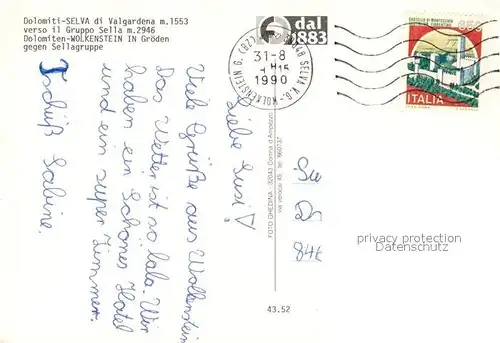 Dolomiti-SELVA di Valgardena m.1553
verso il Gruppo Sella m.2946
Dolomiten-WOLKENSTEIN IN Gröden
gegen Sellagruppe
dal
1883
31-8
1990
SELVA V.G. - WOLKENSTEIN G. (BZ)
650
CASTELLO DI MONTECCHIO
ITALIA
Liebe Susi!
Viele Grüße aus Wolkenstein
Das Wetter ist so lala. Wir
haben ein schönes Hotel
und ein super Zimmer.
Tschüß Sabine.
FOTO GHEDINA - 32043 Cortina d'Ampezzo
via venezia 45 tel. 860737
43.52
Su
84
privacy protection
Datenschutz